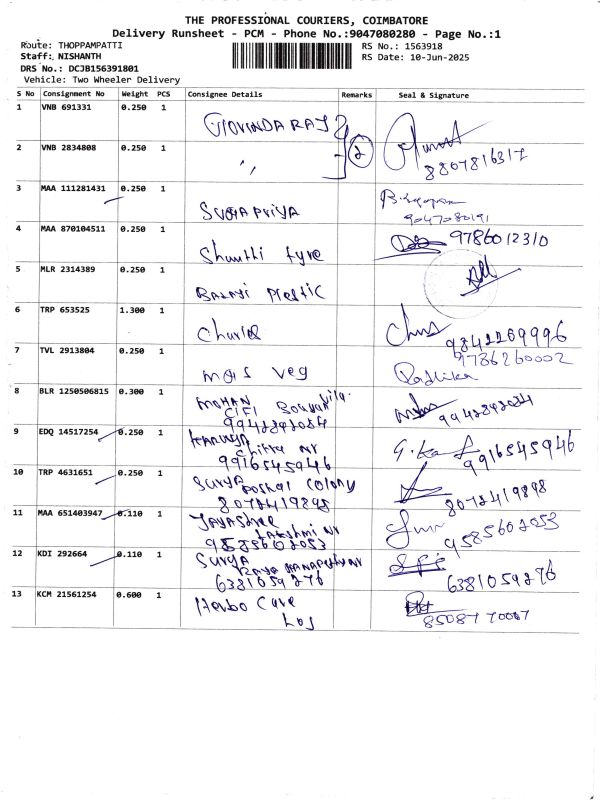 THE PROFESSIONAL COURIERS, COIMBATORE
Delivery Runsheet - PCM - Phone No.:9047080280 - Page No.:1
Route: THOPPAMPATTI
RS No.: 1563918
Staff: NISHANTH
RS Date: 10-Jun-2025
DRS No.: DCJB156391801
Vehicle: Two Wheeler Delivery
S No Consignment No Weight PCS Consignee Details Remarks Seal & Signature
1 VNB 691331 0.250 1 GOVINDARAJ
2 VNB 2834808 0.250 1 " 2 8807816317
3 MAA 111281431 0.250 1 SURYA PRIYA 9047080191
4 MAA 870104511 0.250 1 Shanthi tyre 9786012310
5 MLR 2314389 0.250 1 BALAJI Plastic
6 TRP 653525 1.300 1 Charles 9842269996
7 TVL 2913804 0.250 1 veg 9786260002
Radhika
8 BLR 1250506815 0.300 1 MOHAN
9942892084 9942892084
9 EDQ 14517254 0.250 1 Chitra Nr
9916545946 9916545946
10 TRP 4631651 0.250 1 SURYA
Postal Colony
8072419898 8072419898
11 MAA 651403947 0.110 1 JAYASHREE
LAKSHMI Nr
9585602053 9585602053
12 KDI 292664 0.110 1 SURYA
6381059276 6381059276
13 KCM 21561254 0.600 1 Herbo Care
8508770007